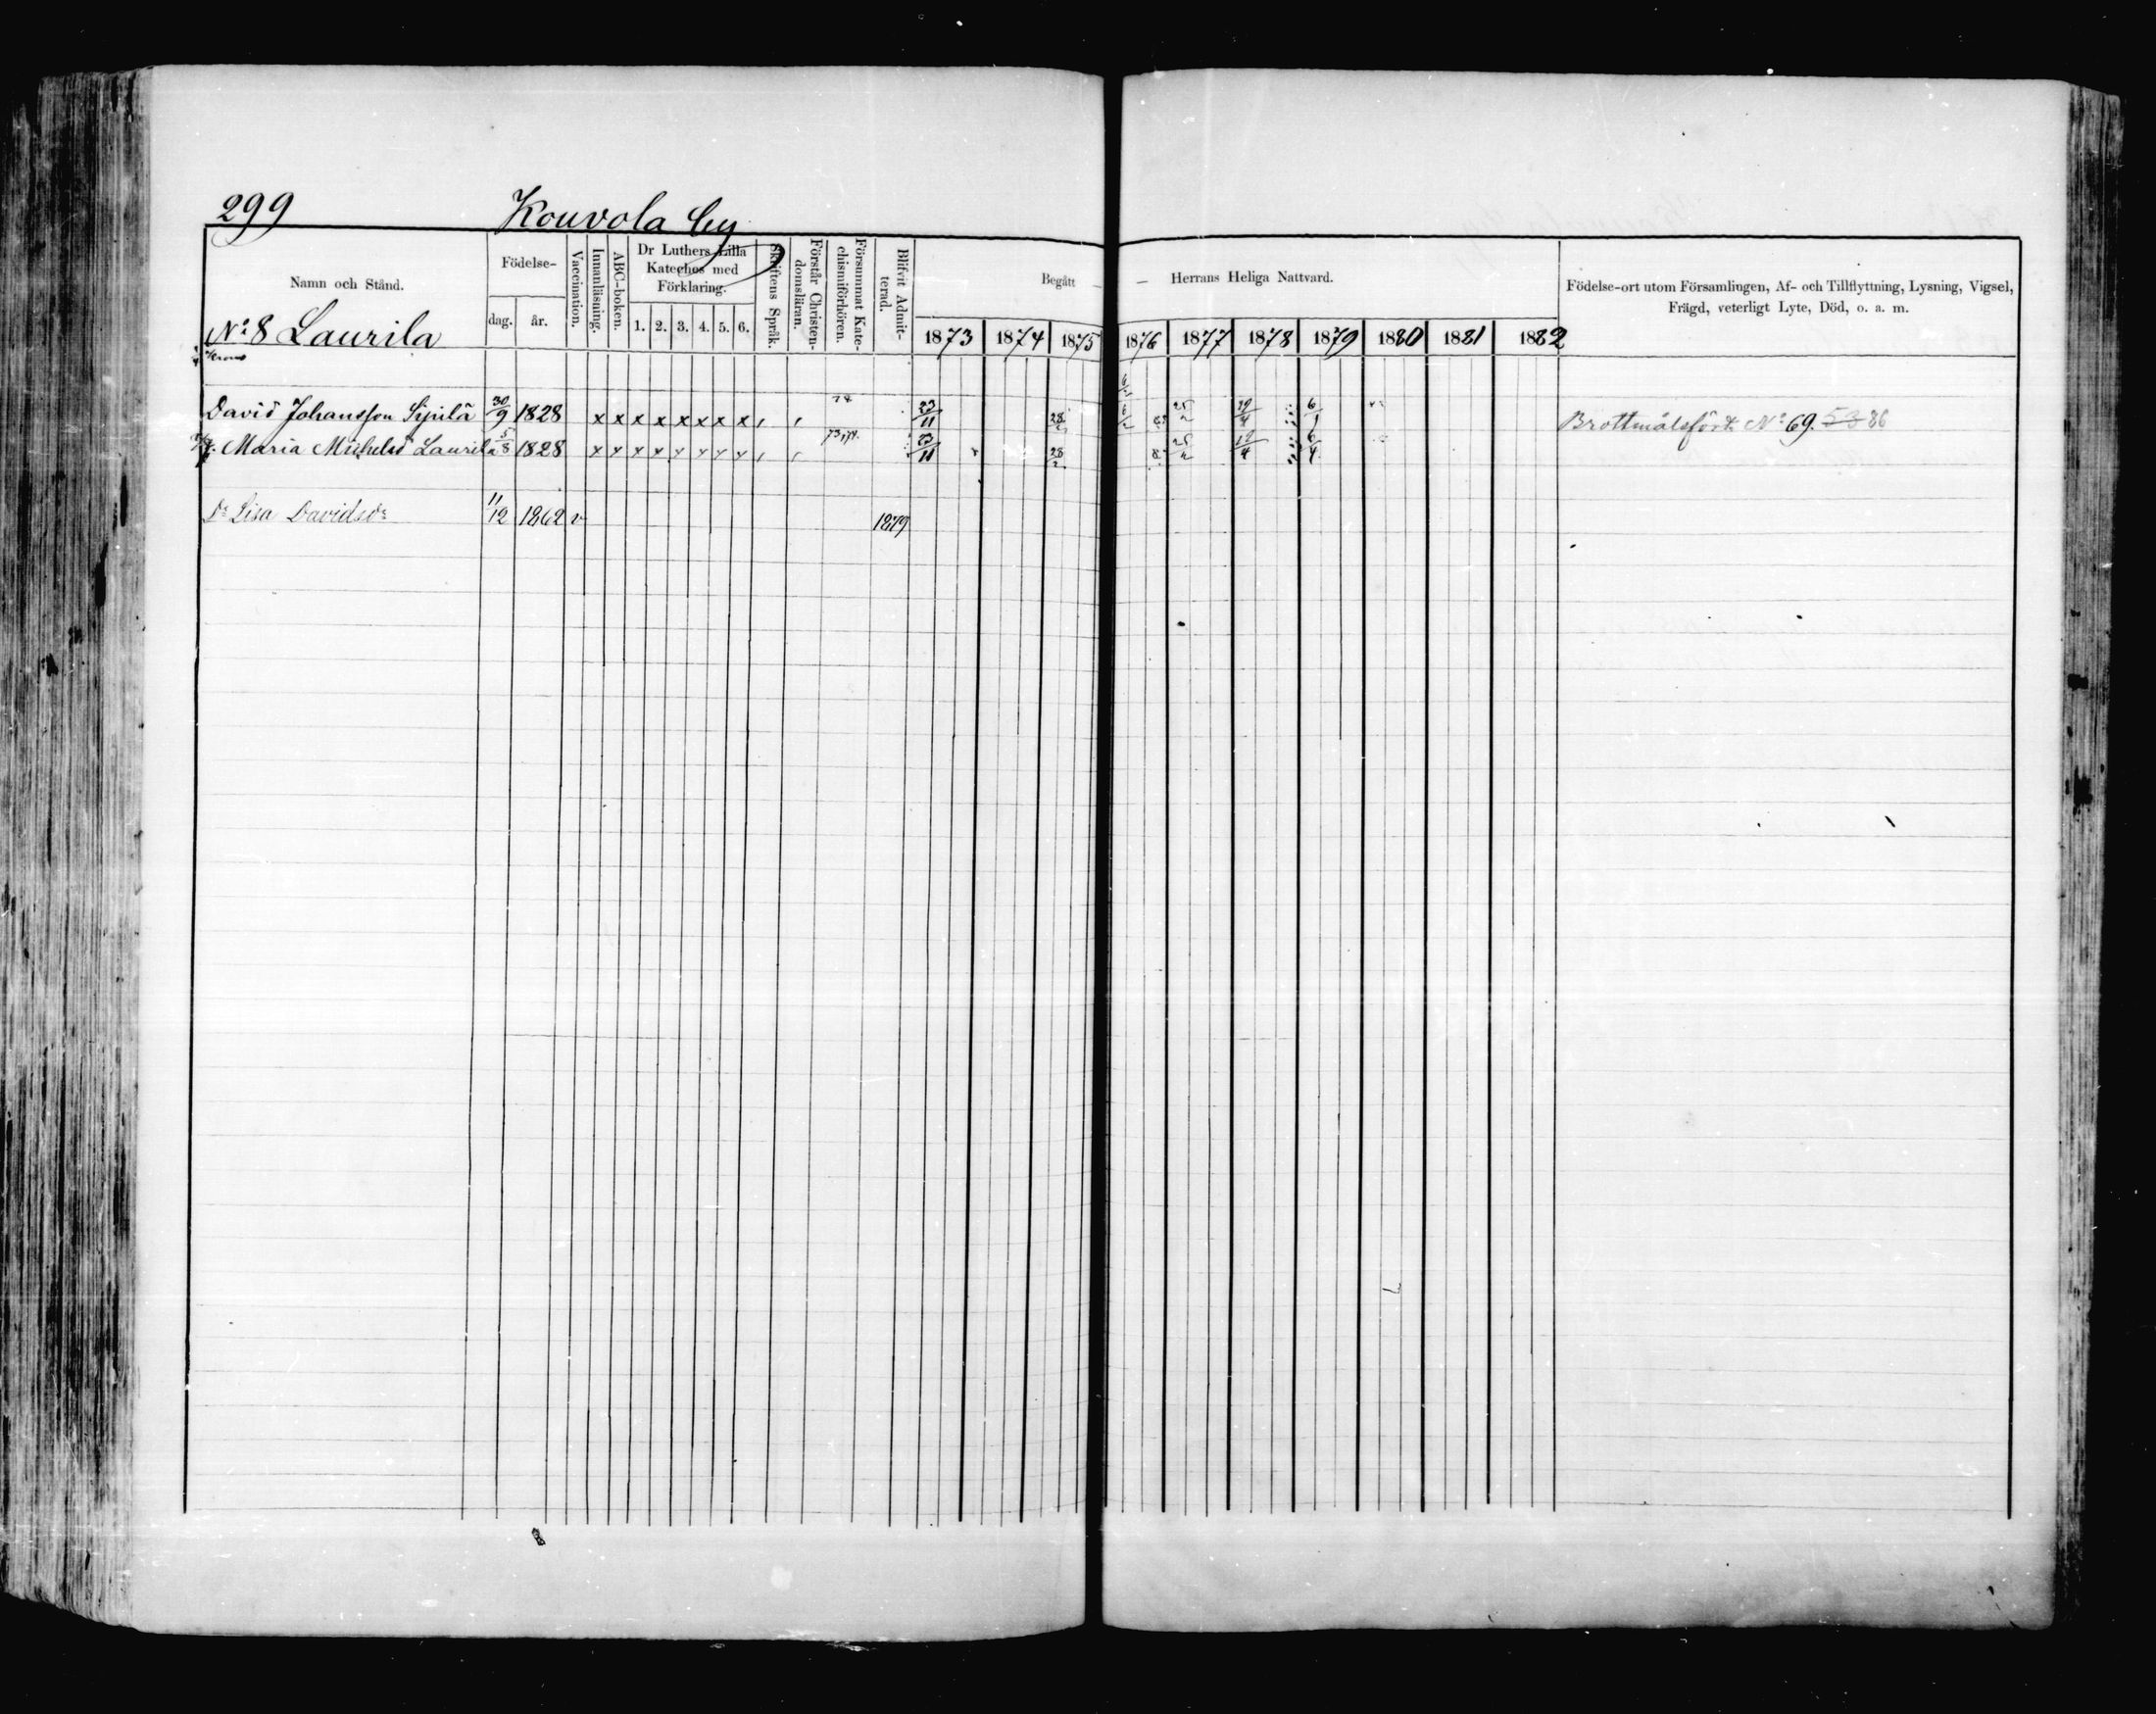 299 Kouvola by
Namn och Stånd. Födelse- dag. år. Vaccination. Innanläsning. ABC-boken. Dr Luthers Lilla Kateches med Förklaring. 1. 2. 3. 4. 5. 6. Skriftens Språk. Förstår Christendomsläran. Försummat Katechismiförhören. Blifvit Admitterad. Begått — — Herrans Heliga Nattvard. 1873 1874 1875 1876 1877 1878 1879 1880 1881 1882 Födelse-ort utom Församlingen, Af- och Tillflyttning, Lysning, Vigsel, Frägd, veterligt Lyte, Död, o. a. m.
No 8 Laurila
David Johansson Sipilä 30/9 1828 x x x x x x x x 23/11 28/2 25/2 Brottmålsfört. No 69. 53 86
Maria Michelsd Laurila 5/8 1828 x x x x x x x x 73,74. 23/11 28/2 25/2 6/4
Dr Lisa Davidsdr 11/12 1862 v 1879